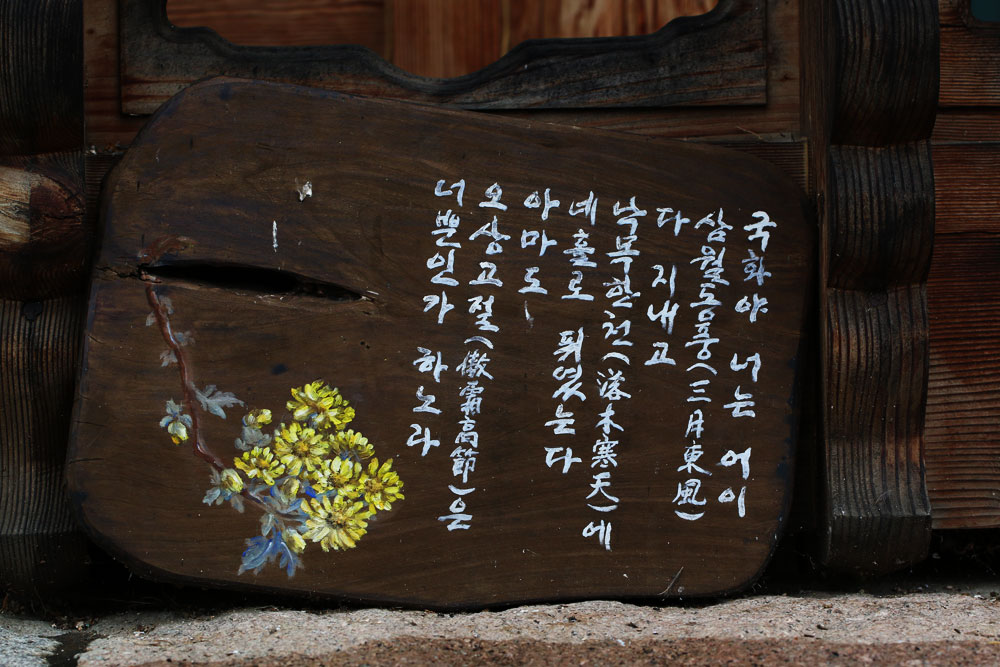 국화야 너는 어이
삼월동풍(三月東風)
다 지내고
낙목한천(落木寒天)에
네홀로 퓌엿는다
아마도
오상고절(傲霜高節)은
너뿐인가 하노라